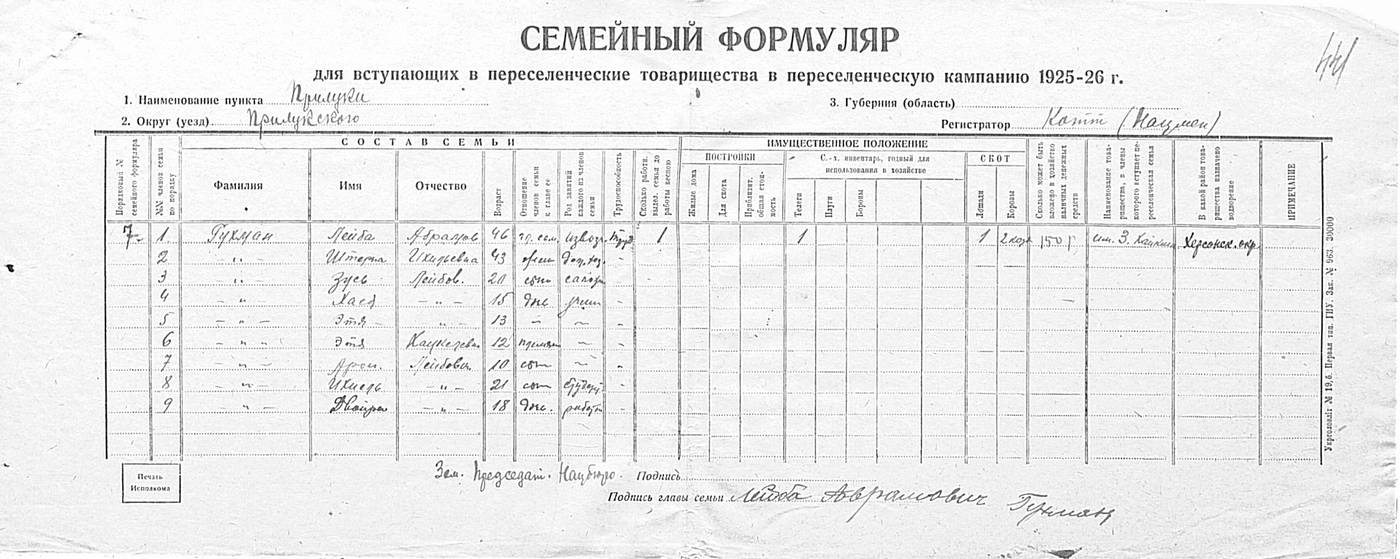 441
СЕМЕЙНЫЙ ФОРМУЛЯР
для вступающих в переселенческие товарищества в переселенческую кампанию 1925-26 г.
1. Наименование пункта Прилуки 3. Губерния (область)
2. Округ (уезд) Прилукского Регистратор (Нацмен)
Порядковый № семейного формуляра
№№ членов семьи по порядку
СОСТАВ СЕМЬИ
Фамилия Имя Отчество
Возраст
Отношение членов семьи к главе ее
Род занятий каждого из членов семьи
Трудоспособность
Сколько работн. выдел. семья до работы весною
ИМУЩЕСТВЕННОЕ ПОЛОЖЕНИЕ
ПОСТРОЙКИ
Жилые дома
Для скота
Приблизит. общая стоимость
С.-х. инвентарь, годный для использования в хозяйстве
Телеги
Плуги
Бороны
СКОТ
Лошади
Коровы
Сколько может быть вложено в хозяйство наличных денежных средств
Наименование товарищества, в члены которого вступает переселенческая семья
В какой район товарищества назначено водворение
ПРИМЕЧАНИЕ
7 1. Гухман Лейба Абрамов 46 гл. сем. извозч. 1 1 1 150 р. им. Херсонск. окр.
2 - „ - Ихильевна 43
3 - „ - Зусь Лейбов. 20 сын
4 - „ - Хася - „ - 15 дочь
5 - „ - Этя - „ - 13 - „ -
6 - „ - Этя 12
7 - „ - Арон. Лейбович 10 сын
8 - „ - Ихиель - „ - 21 сын студент
9 - „ - Двойра - „ - 18 доч.
Укрголовліт № 19, б. Первая тип. ГИУ. Зак. № 963. 30000
Печать Исполкома
Зам. Председат. Нацбюро. Подпись
Подпись главы семьи Лейба Аврамович Гухман